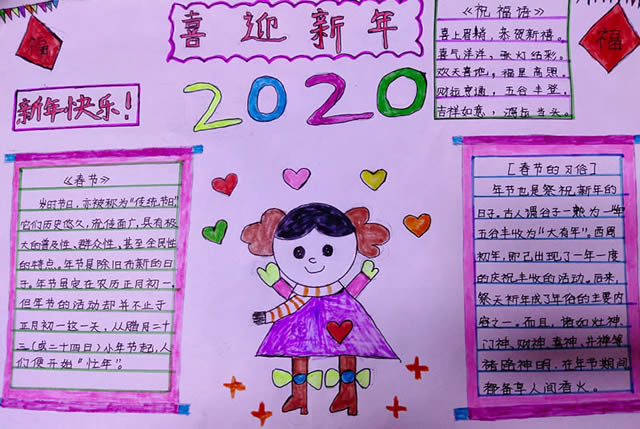 福
喜迎新年
福
2020
新年快乐!
《祝福语》
喜上眉梢，恭贺新禧。
喜气洋洋，张灯结彩。
欢天喜地，福星高照。
财运亨通，五谷丰登。
吉祥如意，鸿运当头。
《春节》
岁时节日，亦被称为“传统节日”。
它们历史悠久，流传面广，具有极
大的普及性、群众性，甚至全民性
的特点。年节是除旧布新的日
子。年节虽定在农历正月初一，
但年节的活动却并不止于
正月初一这一天，从腊月二十
三(或二十四日)小年节起，人
们便开始“忙年”。
[春节的习俗]
年节也是祭祝新年的
日子。古人谓谷子一熟为一“年”
五谷丰收为“大有年”。西周
初年，即已出现了一年一度
的庆祝丰收的活动。后来，
祭天祈年成了年俗的主要内
容之一。而且，诸如灶神、
门神、财神、喜神、井神等
诸路神明，在年节期间
都备享人间香火。